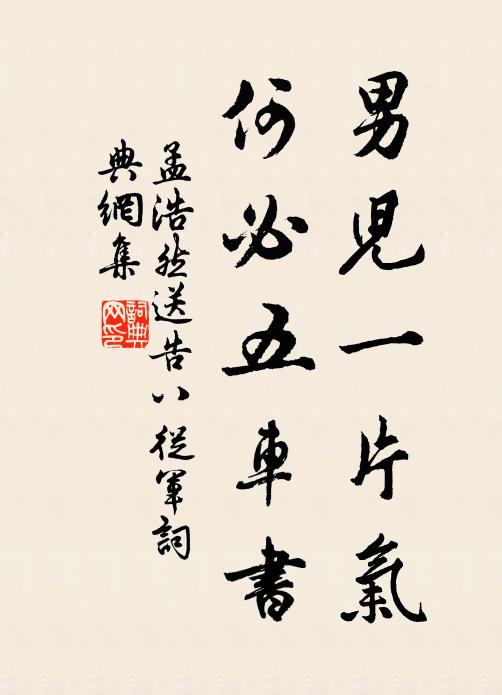 男兒一片氣
何必五車書
孟浩然送告八從軍詞
典網集
詞典
网印